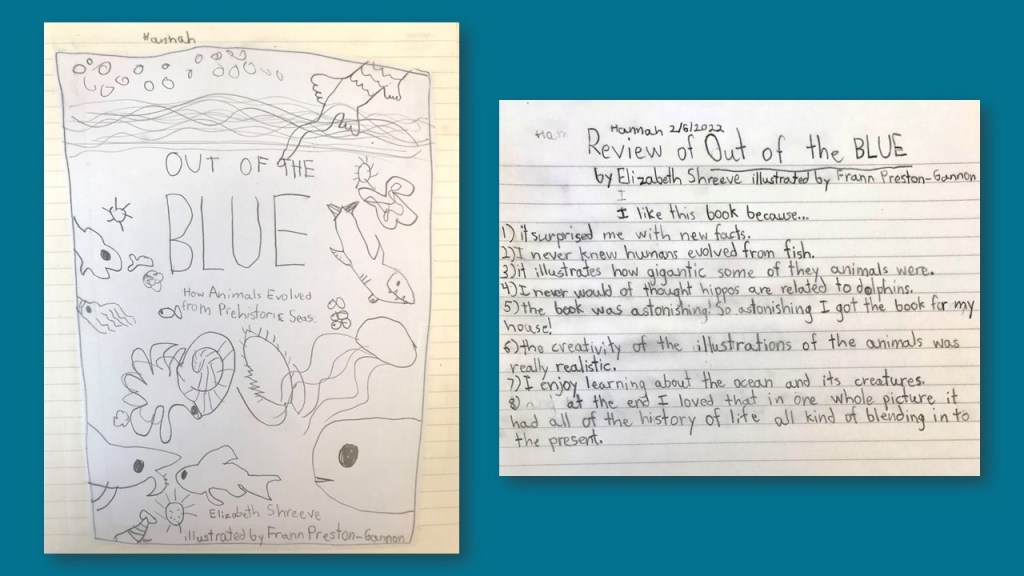 Hannah
OUT OF THE
BLUE
How Animals Evolved
from Prehistoric Seas.
Elizabeth Shreeve
illustrated by Frann Preston-Gannon
Han
Hannah 2/6/2022
Review of Out of the BLUE
by Elizabeth Shreeve illustrated by Frann Preston-Gannon
I
I like this book because...
1) it surprised me with new facts.
2) I never knew humans evolved from fish.
3) it illustrates how gigantic some of they animals were.
4) I never would of thought hippos are related to dolphins.
5) the book was astonishing! So astonishing I got the book for my
house!
6) the creativity of the illustrations of the animals was
really realistic.
7) I enjoy learning about the ocean and its creatures.
8) at the end I loved that in one whole picture it
had all of the history of life all kind of blending in to
the present.